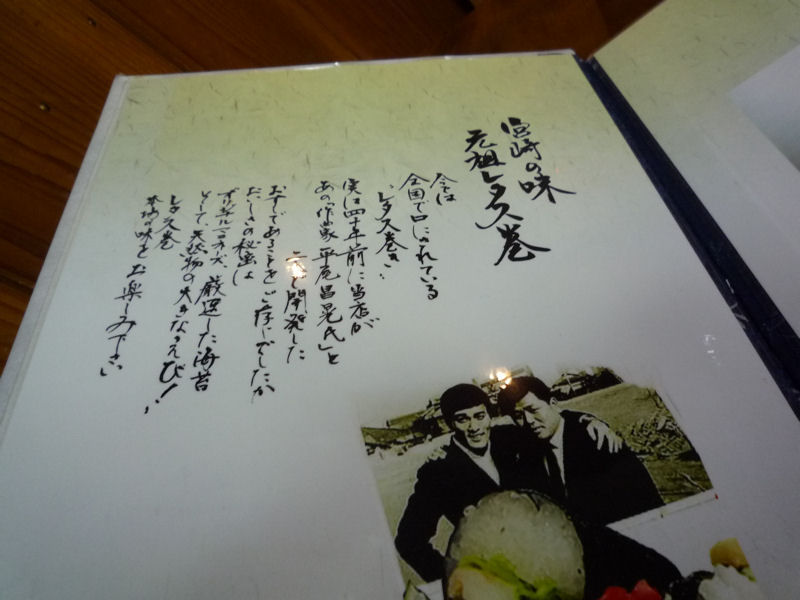 宮崎の味
元祖レタス巻
今では
全国で口にされている
“レタス巻き”
実は四十年前に当店が
あの「作曲家 平尾昌晃氏」と
開発した
おすしであることをご存じでしたか
おいしさの秘密は
オリジナルマヨネーズ、厳選した海苔
そして天然物の大きなえび!!
レタス巻
本場の味をお楽しみ下さい